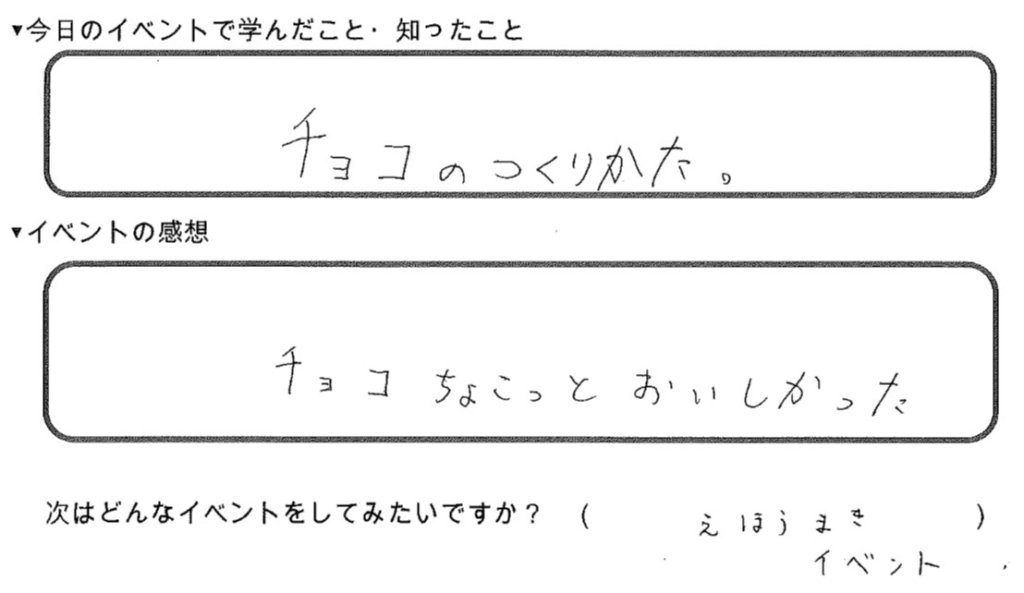 ▼今日のイベントで学んだこと・知ったこと
チョコのつくりかた。
▼イベントの感想
チョコちょこっとおいしかった
次はどんなイベントをしてみたいですか？（えほうまき）
イベント